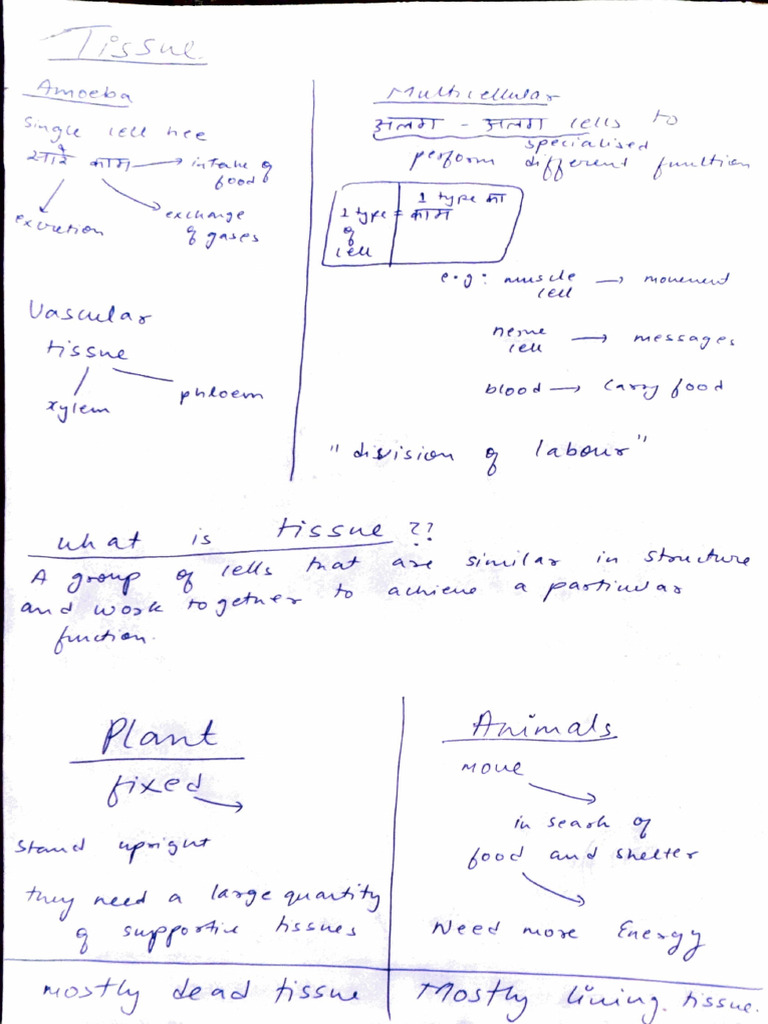 Tissue
Amoeba
Single cell hee
सारे काम → intake of
food
excretion
exchange
of gases
Vascular
tissue
xylem
phloem
Multicellular
अलग - अलग cells to
specialised
perform different function
1 type =
of
cell
1 type का
काम
e.g: muscle → movement
cell
nerve → messages
cell
blood → carry food
"division of labour"
what is tissue??
A group of cells that are similar in structure
and work together to achieve a particular
function.
Plant
fixed →
stand upright
they need a large quantity
of supportive tissues
mostly dead tissue
Animals
move
in search of
food and shelter
Need more Energy
Mostly living tissue.